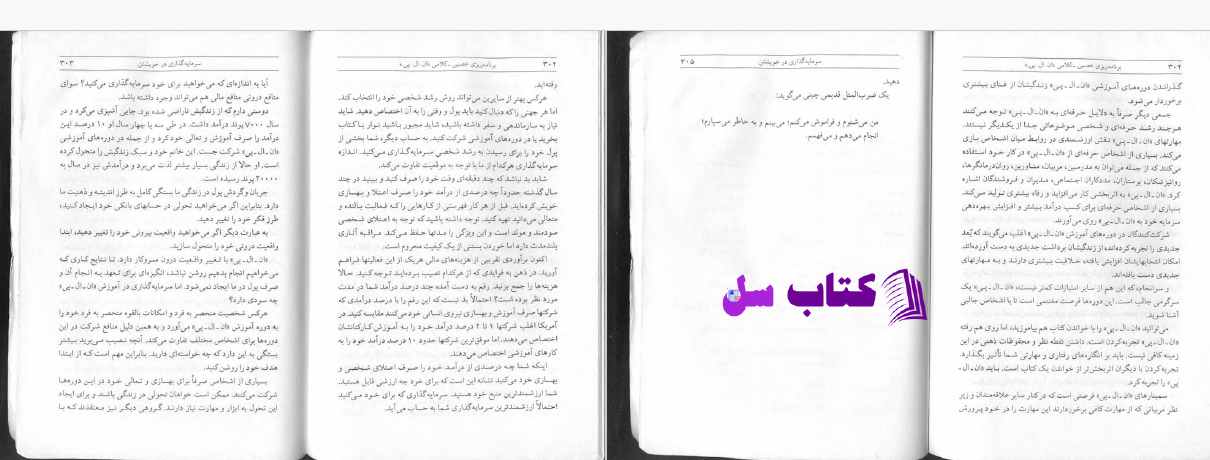 ۳۰۲ برنامه‌ریزی عصبی ـ کلامی «ان. ال. پی»
رفته‌اید.
هرکس بهتر از سایرین می‌تواند روش رشد شخصی خود را انتخاب کند.
اما هر جهتی را که دنبال کنید باید پول و وقتی را به آن اختصاص دهید. شاید
نیاز به سازماندهی و سفر داشته باشید، شاید مجبور باشید نوار یا کتاب
بخرید یا در دوره‌های آموزشی شرکت کنید. به حساب دیگر، شما بخشی از
پول خود را برای رسیدن به رشد شخصی سرمایه‌گذاری می‌کنید. اندازه
سرمایه‌گذاری هرکدام از ما با توجه به موقعیت تفاوت می‌کند.
شاید بد نباشد که چند دقیقه‌ای وقت خود را صرف کنید و ببینید در چند
سال گذشته حدوداً چه درصدی از درآمد خود را صرف اعتلا و بهسازی
خویش کرده‌اید. قبل از هر کار فهرستی از کارهایی را که فعالیت بالنده و
متعالی می‌دانید تهیه کنید. توجه داشته باشید که توجه به اعتلای شخصی
سودمند و مولد است و این ویژگی را مدتها حفظ می‌کند. مراقبه آثاری
بلندمدت دارد اما خوردن بستنی از یک کیفیت محروم است.
اکنون برآوردی تقریبی از هزینه‌های مالی هریک از این فعالیتها فراهم
آورید. در ذهن به فوایدی که از هرکدام نصیب برده‌اید توجه کنید. حالا
هزینه‌ها را جمع بزنید. رقم به دست آمده چند درصد درآمد شما در مدت
مورد نظر بوده است؟ احتمالاً بد نیست که این رقم را با درصد درآمدی که
شرکتها صرف آموزش و بهسازی نیروی انسانی خود می‌کنند مقایسه کنید. در
آمریکا اغلب شرکتها ۱ تا ۲ درصد درآمد خود را به آموزش کارکنانشان
اختصاص می‌دهند. اما موفق‌ترین شرکتها حدود ۱۰ درصد درآمد خود را به
کارهای آموزشی اختصاص می‌دهند.
اینکه شما چه درصدی از درآمد خود را صرف اعتلای شخصی و
بهسازی خود می‌کنید نشانه این است که برای خود چه ارزشی قایل هستید.
شما ارزشمندترین منبع خود هستید. سرمایه‌گذاری که برای خود می‌کنید
احتمالاً ارزشمندترین سرمایه‌گذاری شما به حساب می‌آید.
سرمایه‌گذاری در خویشتن ۳۰۳
آیا به اندازه‌ای که می‌خواهید برای خود سرمایه‌گذاری می‌کنید؟ سوای
منافع درونی منافع مالی هم می‌تواند وجود داشته باشد.
دوستی دارم که از زندگیش ناراضی شده بود. جایی آشپزی می‌کرد و در
سال ۷۰۰۰ پوند درآمد داشت. در طی سه یا چهار سال او ۱۰ درصد این
درآمد را صرف آموزش و تعالی خود کرد و از جمله در دوره‌های آموزشی
«ان ـ ال ـ پی» شرکت جست. این خانم خود و سبک زندگیش را متحول کرده
است. او حالا از زندگی بسیار بیشتر لذت می‌برد و درآمدش نیز در سال به
۲۰۰۰۰ پوند رسیده است.
جریان و گردش پول در زندگی ما بستگی کامل به طرز اندیشه و ذهنیت ما
دارد. بنابراین اگر می‌خواهید تحولی در حسابهای بانکی خود ایجاد کنید،
طرز فکر خود را تغییر دهید.
به عبارت دیگر اگر می‌خواهید واقعیت بیرونی خود را تغییر دهید، ابتدا
واقعیت درونی خود را متحول سازید.
«ان ـ ال ـ پی» با تغییر واقعیت درون سروکار دارد. تا نتایج کاری که
می‌خواهیم انجام بدهیم روشن نباشد، انگیزه‌ای برای تعهد به انجام آن و
صرف پول در ما ایجاد نمی‌شود. اما سرمایه‌گذاری در آموزش «ان ـ ال ـ پی»
چه سودی دارد؟
هرکس شخصیت منحصر به فرد و امکانات بالقوه منحصر به فرد خود را
به دوره آموزشی «ان ـ ال ـ پی» می‌آورد و به همین دلیل منافع شرکت در این
دوره‌ها برای اشخاص مختلف تفاوت می‌کند. آنچه نصیب می‌برید بیشتر
بستگی به این دارد که چه خواسته‌ای دارید. بنابراین مهم است که از ابتدا
هدف خود را روشن کنید.
بسیاری از اشخاص صرفاً برای بهسازی و تعالی خود در این دوره‌ها
شرکت می‌کنند. ممکن است خواهان تحولی در زندگی باشند و برای ایجاد
این تحول به ابزار و مهارت نیاز دارند. گروهی دیگر نیز معتقدند که با
۳۰۴ برنامه‌ریزی عصبی ـ کلامی «ان. ال. پی»
گذراندن دوره‌های آموزشی «ان ـ ال ـ پی» زندگیشان از غنای بیشتری
برخوردار می‌شود.
جمعی دیگر صرفاً به دلایل حرفه‌ای به «ان ـ ال ـ پی» توجه می‌کنند
هرچند رشد حرفه‌ای و شخصی موضوعاتی جدا از یکدیگر نیستند.
مهارتهای «ان ـ ال ـ پی» نقش ارزشمندی در روابط میان اشخاص بازی
می‌کند. بسیاری از اشخاص حرفه‌ای از «ان ـ ال ـ پی» در کار خود استفاده
می‌کنند که از جمله می‌توان به مدرسین، مربیان، مشاورین، روان‌درمانگرها،
روانپزشکان، پرستاران، مددکاران اجتماعی، مدیران و فروشندگان اشاره
کرد. «ان ـ ال ـ پی» به اثربخشی کار می‌افزاید و رفاه بیشتری تولید می‌کند.
بسیاری از اشخاص حرفه‌ای برای کسب درآمد بیشتر و افزایش بهره‌دهی
سرمایه خود به «ان ـ ال ـ پی» روی می‌آورند.
شرکت‌کنندگان در دوره‌های آموزش «ان ـ ال ـ پی» اغلب می‌گویند که بُعد
جدیدی را تجربه کرده‌اند، از زندگیشان برداشت جدیدی به دست آورده‌اند،
امکان انتخابهایشان افزایش یافته، خلاقیت بیشتری دارند و به مهارتهای
جدیدی دست یافته‌اند.
و سرانجام، که این هم از سایر امتیازات کمتر نیست، «ان ـ ال ـ پی» یک
سرگرمی جالب است. این دوره‌ها فرصت مغتنمی است تا با اشخاص جالبی
آشنا شوید.
می‌توانید «ان ـ ال ـ پی» را با خواندن کتاب هم بیاموزید، اما روی هم رفته
«ان ـ ال ـ پی» تجربه کردن است. داشتن نقطه نظر و محفوظات ذهنی در این
زمینه کافی نیست. باید بر انگاره‌های رفتاری و مهارتی شما تأثیر بگذارد.
تجربه کردن با دیگران اثربخش‌تر از خواندن یک کتاب است. باید «ان ـ ال ـ
پی» را تجربه کرد.
سمینارهای «ان ـ ال ـ پی» فرصتی است که در کنار سایر علاقه‌مندان و زیر
نظر مربیانی که از مهارت کافی برخوردارند این مهارت را در خود پرورش
سرمایه‌گذاری در خویشتن ۳۰۵
دهید.
یک ضرب‌المثل قدیمی چینی می‌گوید:
من می‌شنوم و فراموش می‌کنم؛ می‌بینم و به خاطر می‌سپارم؛
انجام می‌دهم و می‌فهمم.
کتاب سل